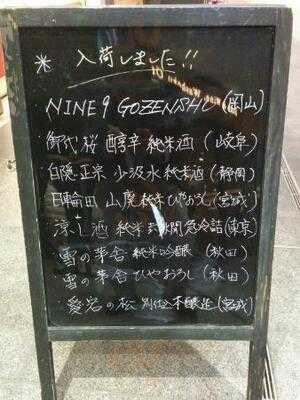 * 入荷しました!!
NINE 9 GOZENSHU (岡山)
・御代桜 醇辛 純米酒 (岐阜)
・白隠正宗 少汲水 純米酒 (静岡)
・日輪田 山廃純米 ひやおろし (宮城)
・涼し酒 純米 急冷詰 (東京)
・雪の茅舎 純米吟醸 (秋田)
・雪の茅舎 ひやおろし (秋田)
・愛宕の松 別仕込本醸造 (宮城)